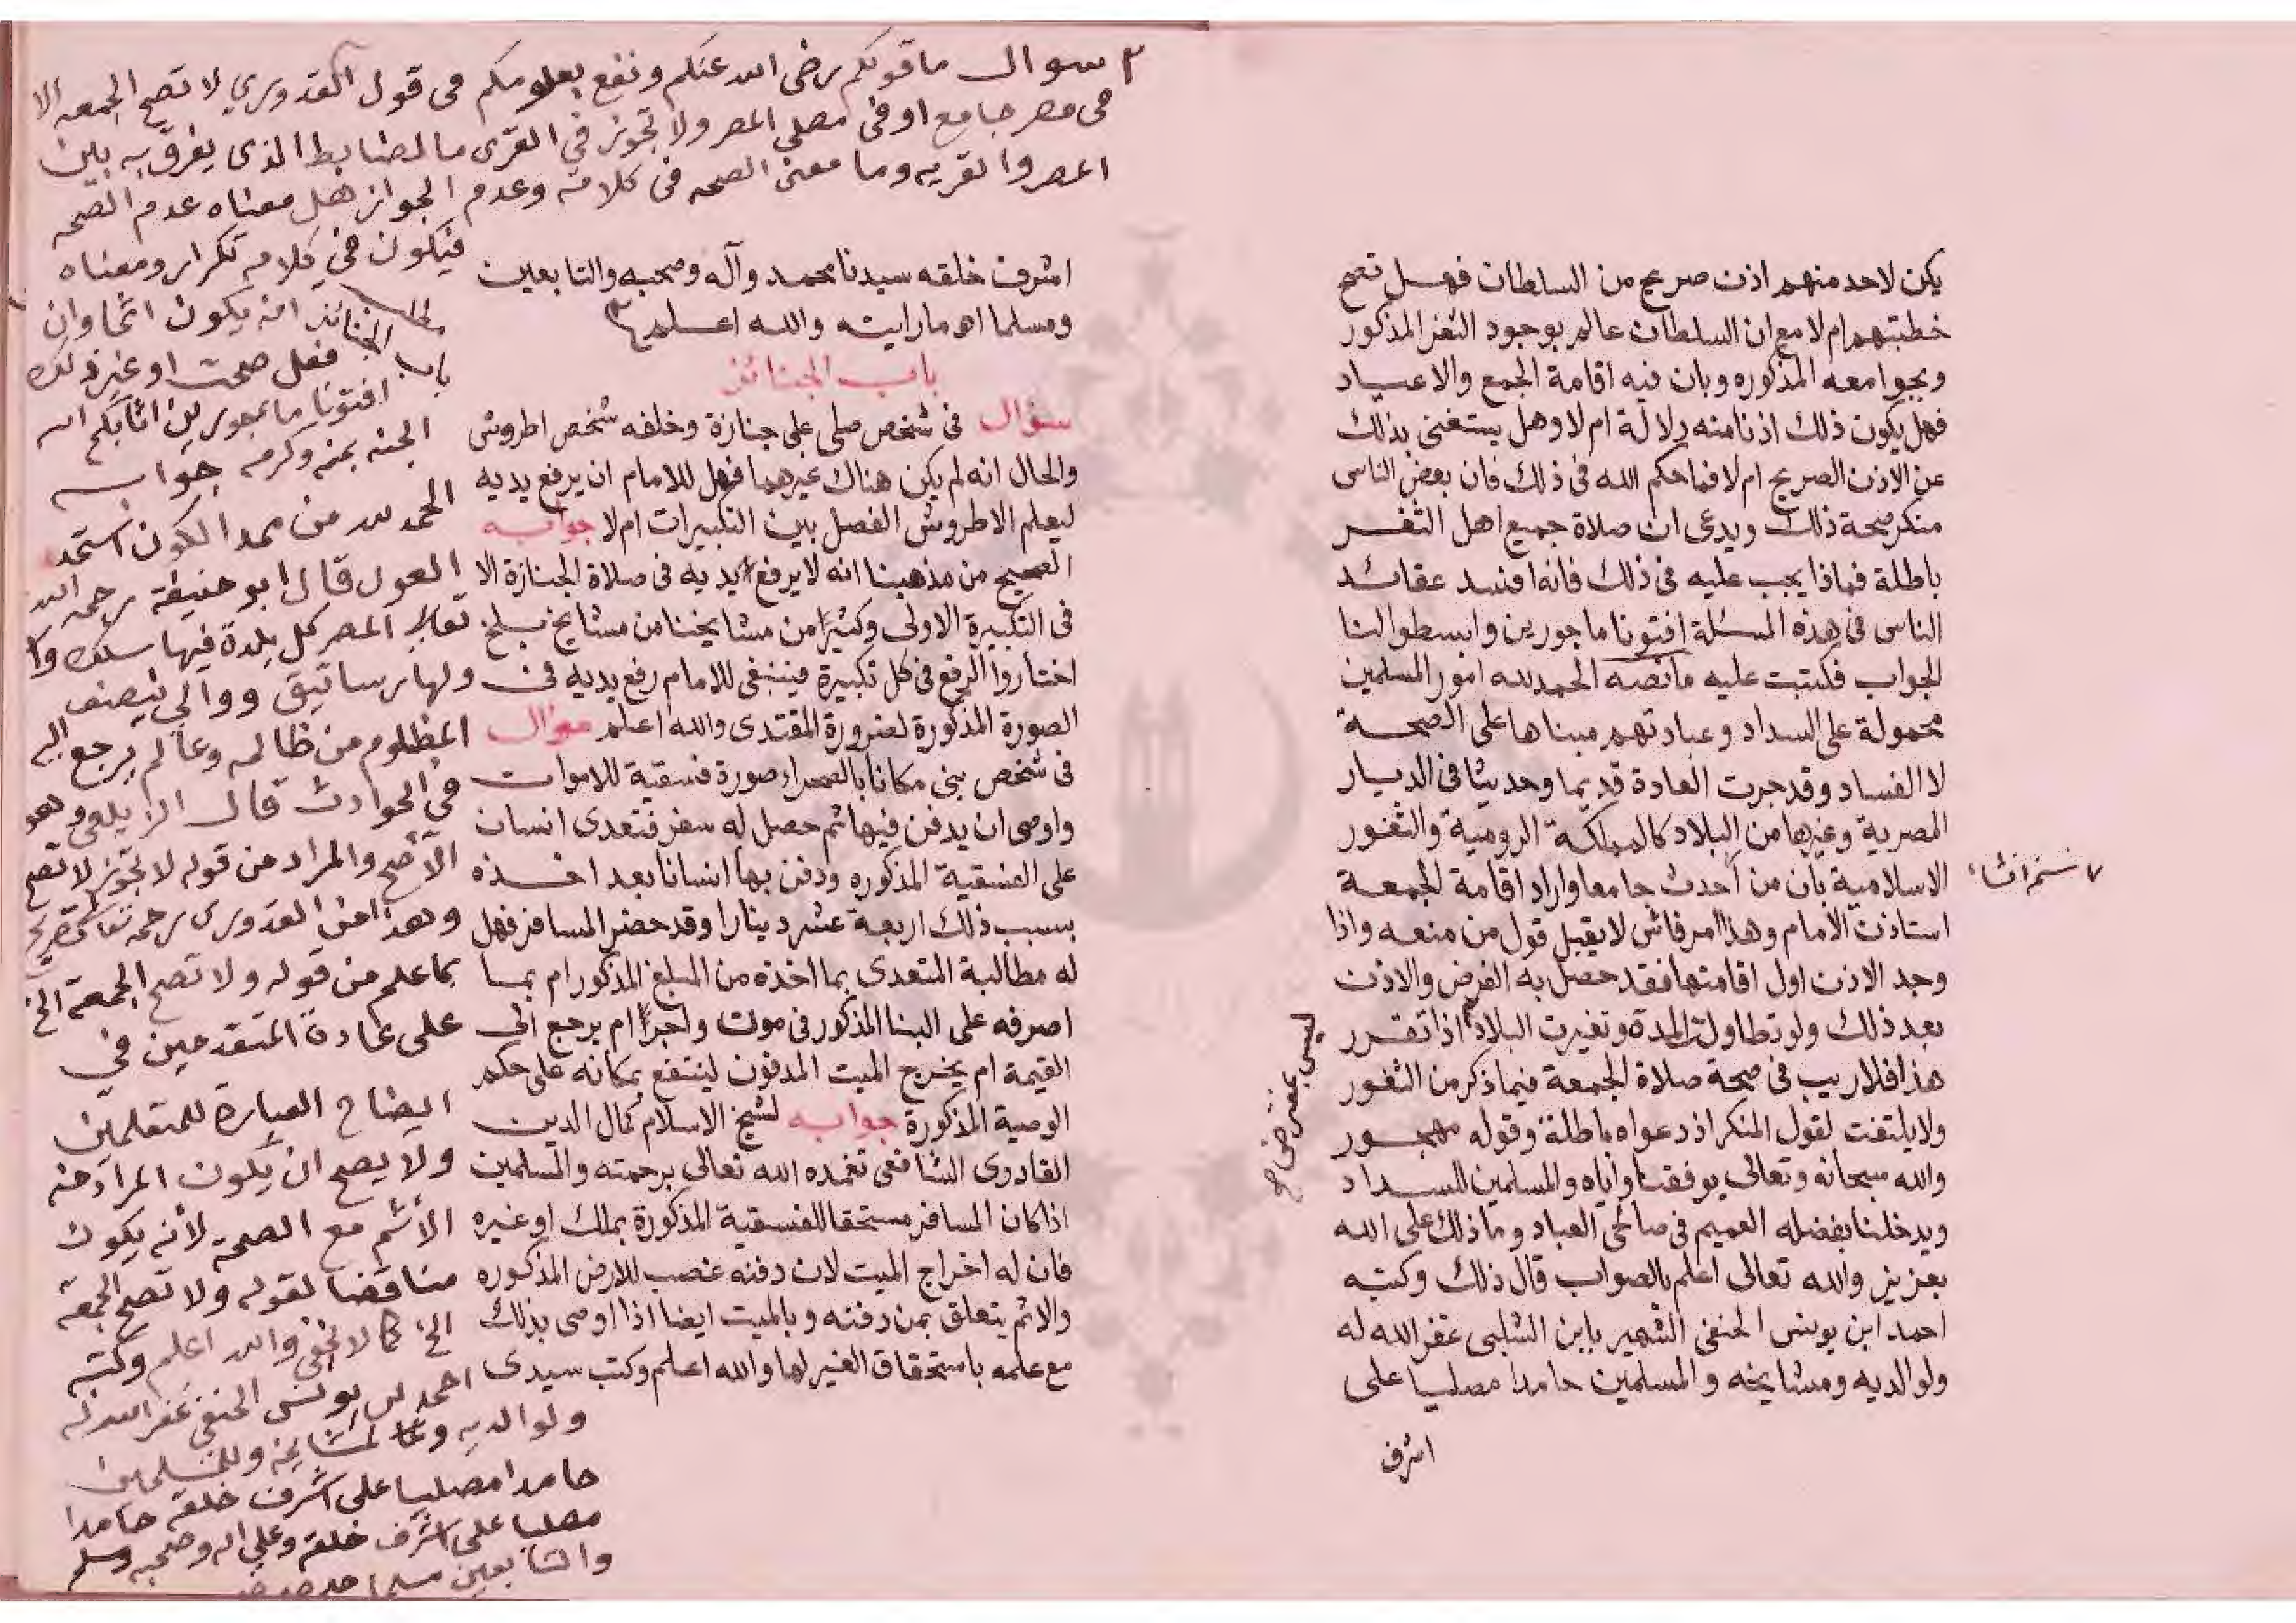 يكن لاحد منهم اذن صريح من السلطان فهل تصح
خطبتهم ام لا مع ان السلطان عالم بوجود الثغر المذكور
وبجوامعه المذكوره وبان فيه اقامة الجمع والاعياد
فهل يكون ذلك اذنا منه دلالة ام لا وهل يستغنى بذلك
عن الاذن الصريح ام لا فما حكم الله فى ذلك فان بعض الناس
منكر صحة ذلك ويدعى ان صلاة جميع اهل الثغر
باطلة فماذا يجب عليه فى ذلك فانه افسد عقائد
الناس فى هذه المسئلة افتونا ماجورين وابسطوا لنا
الجواب فكتبت عليه ما نصه الحمد لله امور المسلمين
محمولة على السداد وعبادتهم مبناها على الصحة
لا الفساد وقد جرت العادة قديما وحديثا فى الديار
المصرية وغيرها من البلاد كالمملكة الرومية والثغور
الاسلامية بان من احدث جامعا واراد اقامة الجمعة
استاذن الامام وهذا امر فاش لا يقبل قول من منعه واذا
وجد الاذن اول اقامتها فقد حصل به الغرض والاذن
بعد ذلك ولو تطاولت المدة وتغيرت البلاد اذا تقرر
هذا فلا ريب فى صحة صلاة الجمعة فيما ذكر من الثغور
ولا يلتفت لقول المنكر اذ دعواه باطلة وقوله مهجور
والله سبحانه وتعالى يوفقنا واياه والمسلمين للسداد
ويدخلنا بفضله العميم فى صالحى العباد وما ذلك على الله
بعزيز والله تعالى اعلم بالصواب قال ذلك وكتبه
احمد ابن يونس الحنفى الشهير بابن الشلبى غفر الله له
ولوالديه ومشايخه والمسلمين حامدا مصليا على
اشرف
اشرف خلقه سيدنا محمد وآله وصحبه والتابعين
ومسلما اه ما رايته والله اعلم
باب الجنائز
سؤال فى شخص صلى على جنازة وخلفه شخص اطروش
والحال انه لم يكن هناك غيرهما فهل للامام ان يرفع يديه
ليعلم الاطروش الفصل بين التكبيرات ام لا جوابه
الصحيح من مذهبنا انه لا يرفع يديه فى صلاة الجنازة الا
فى التكبيرة الاولى وكثيرا من مشايخنا من مشايخ بلخ
اختاروا الرفع فى كل تكبيرة فينبغى للامام رفع يديه فى
الصورة المذكورة لضرورة المقتدى والله اعلم سؤال
فى شخص بنى مكانا بالصحراء صورة فسقية للاموات
واوصى ان يدفن فيها ثم حصل له سفر فتعدى انسان
على الفسقية المذكوره ودفن بها انسانا بعد اخذه
بسبب ذلك اربعة عشر دينارا وقد حضر المسافر فهل
له مطالبة المتعدى بما اخذه من المبلغ المذكور ام بما
اصرفه على البنا المذكور فى مون واجرا ام يرجع الى
القيمة ام يخرج الميت المدفون لينتفع بمكانه على حكم
الوصية المذكورة جوابه لشيخ الاسلام كمال الدين
القادرى الشافعى تغمده الله تعالى برحمته والمسلمين
اذا كان المسافر مستحقا للفسقية المذكورة بملك او غيره
فان له اخراج الميت لان دفنه غصب للارض المذكوره
والاثم يتعلق بمن دفنه وبالميت ايضا اذا اوصى بذلك
مع علمه باستحقاق الغير لها والله اعلم وكتب سيدى
سوال ما قولكم رضى الله عنكم ونفع بعلومكم فى قول القدورى لا تصح الجمعه الا
فى مصر جامع او فى مصلى المصر ولا تجوز فى القرى ما الضابط الذى يفرق به بين
المصر والقريه وما معنى الصحه فى كلامه وعدم الجواز هل معناه عدم الصحه
فيكون فى كلامه تكرار ومعناه
انه يكون اثما وان
فعل صحت او غير ذلك
افتونا ماجورين اثابكم الله
الجنه بمنه وكرمه جوابه
الحمد لله من ممد الكون استمد
العون قال ابو حنيفة رحمه الله
تعالى المصر كل بلدة فيها سكك
ولها رساتيق ووالى ينصف
المظلوم من ظالمه وعالم يرجع اليه
فى الحوادث قال الزيلعى وهو
الاصح والمراد من قوله لا تجوز لا تصح
بما علم من قوله ولا تصح الجمعة الخ
على عادة المتقدمين فى
ايضاح العبارة للمتعلمين
ولا يصح ان يكون المراد منه
الاثم مع الصحة لانه يكون
مناقضا لقوله ولا تصح الجمعة
الخ كما لا يخفى والله اعلم وكتبه
احمد بن يونس الحنفى غفر الله له
ولوالديه ولمشايخه وللمسلمين
حامدا مصليا على اشرف خلقه حامدا
مصليا على اشرف خلقه وعلى اله وصحبه وسلم
باب الجنائز